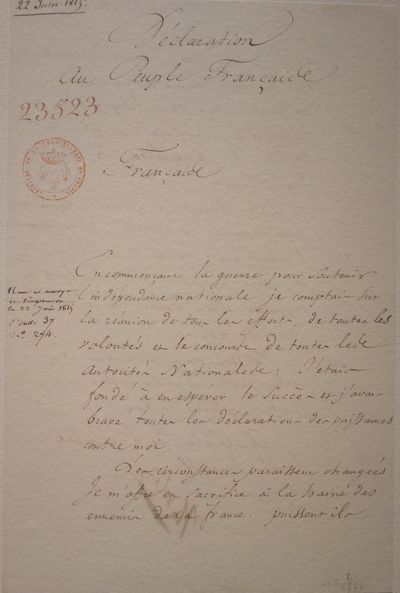 22 Juin 1815.
Déclaration
Au Peuple Français
23523
Français
En commençant la guerre pour soutenir
l'indépendance nationale je comptais sur
la réunion de tous les efforts de toutes les
volontés et le concours de toutes les
autorités Nationales: J'étais
fondé à en espérer le succès et j'avais
bravé toutes les déclarations des puissances
contre moi.
Des circonstances paraissent changées
Je m'offre en sacrifice à la haine des
ennemis de la france. puissent ils
le 22 Juin 1815
37